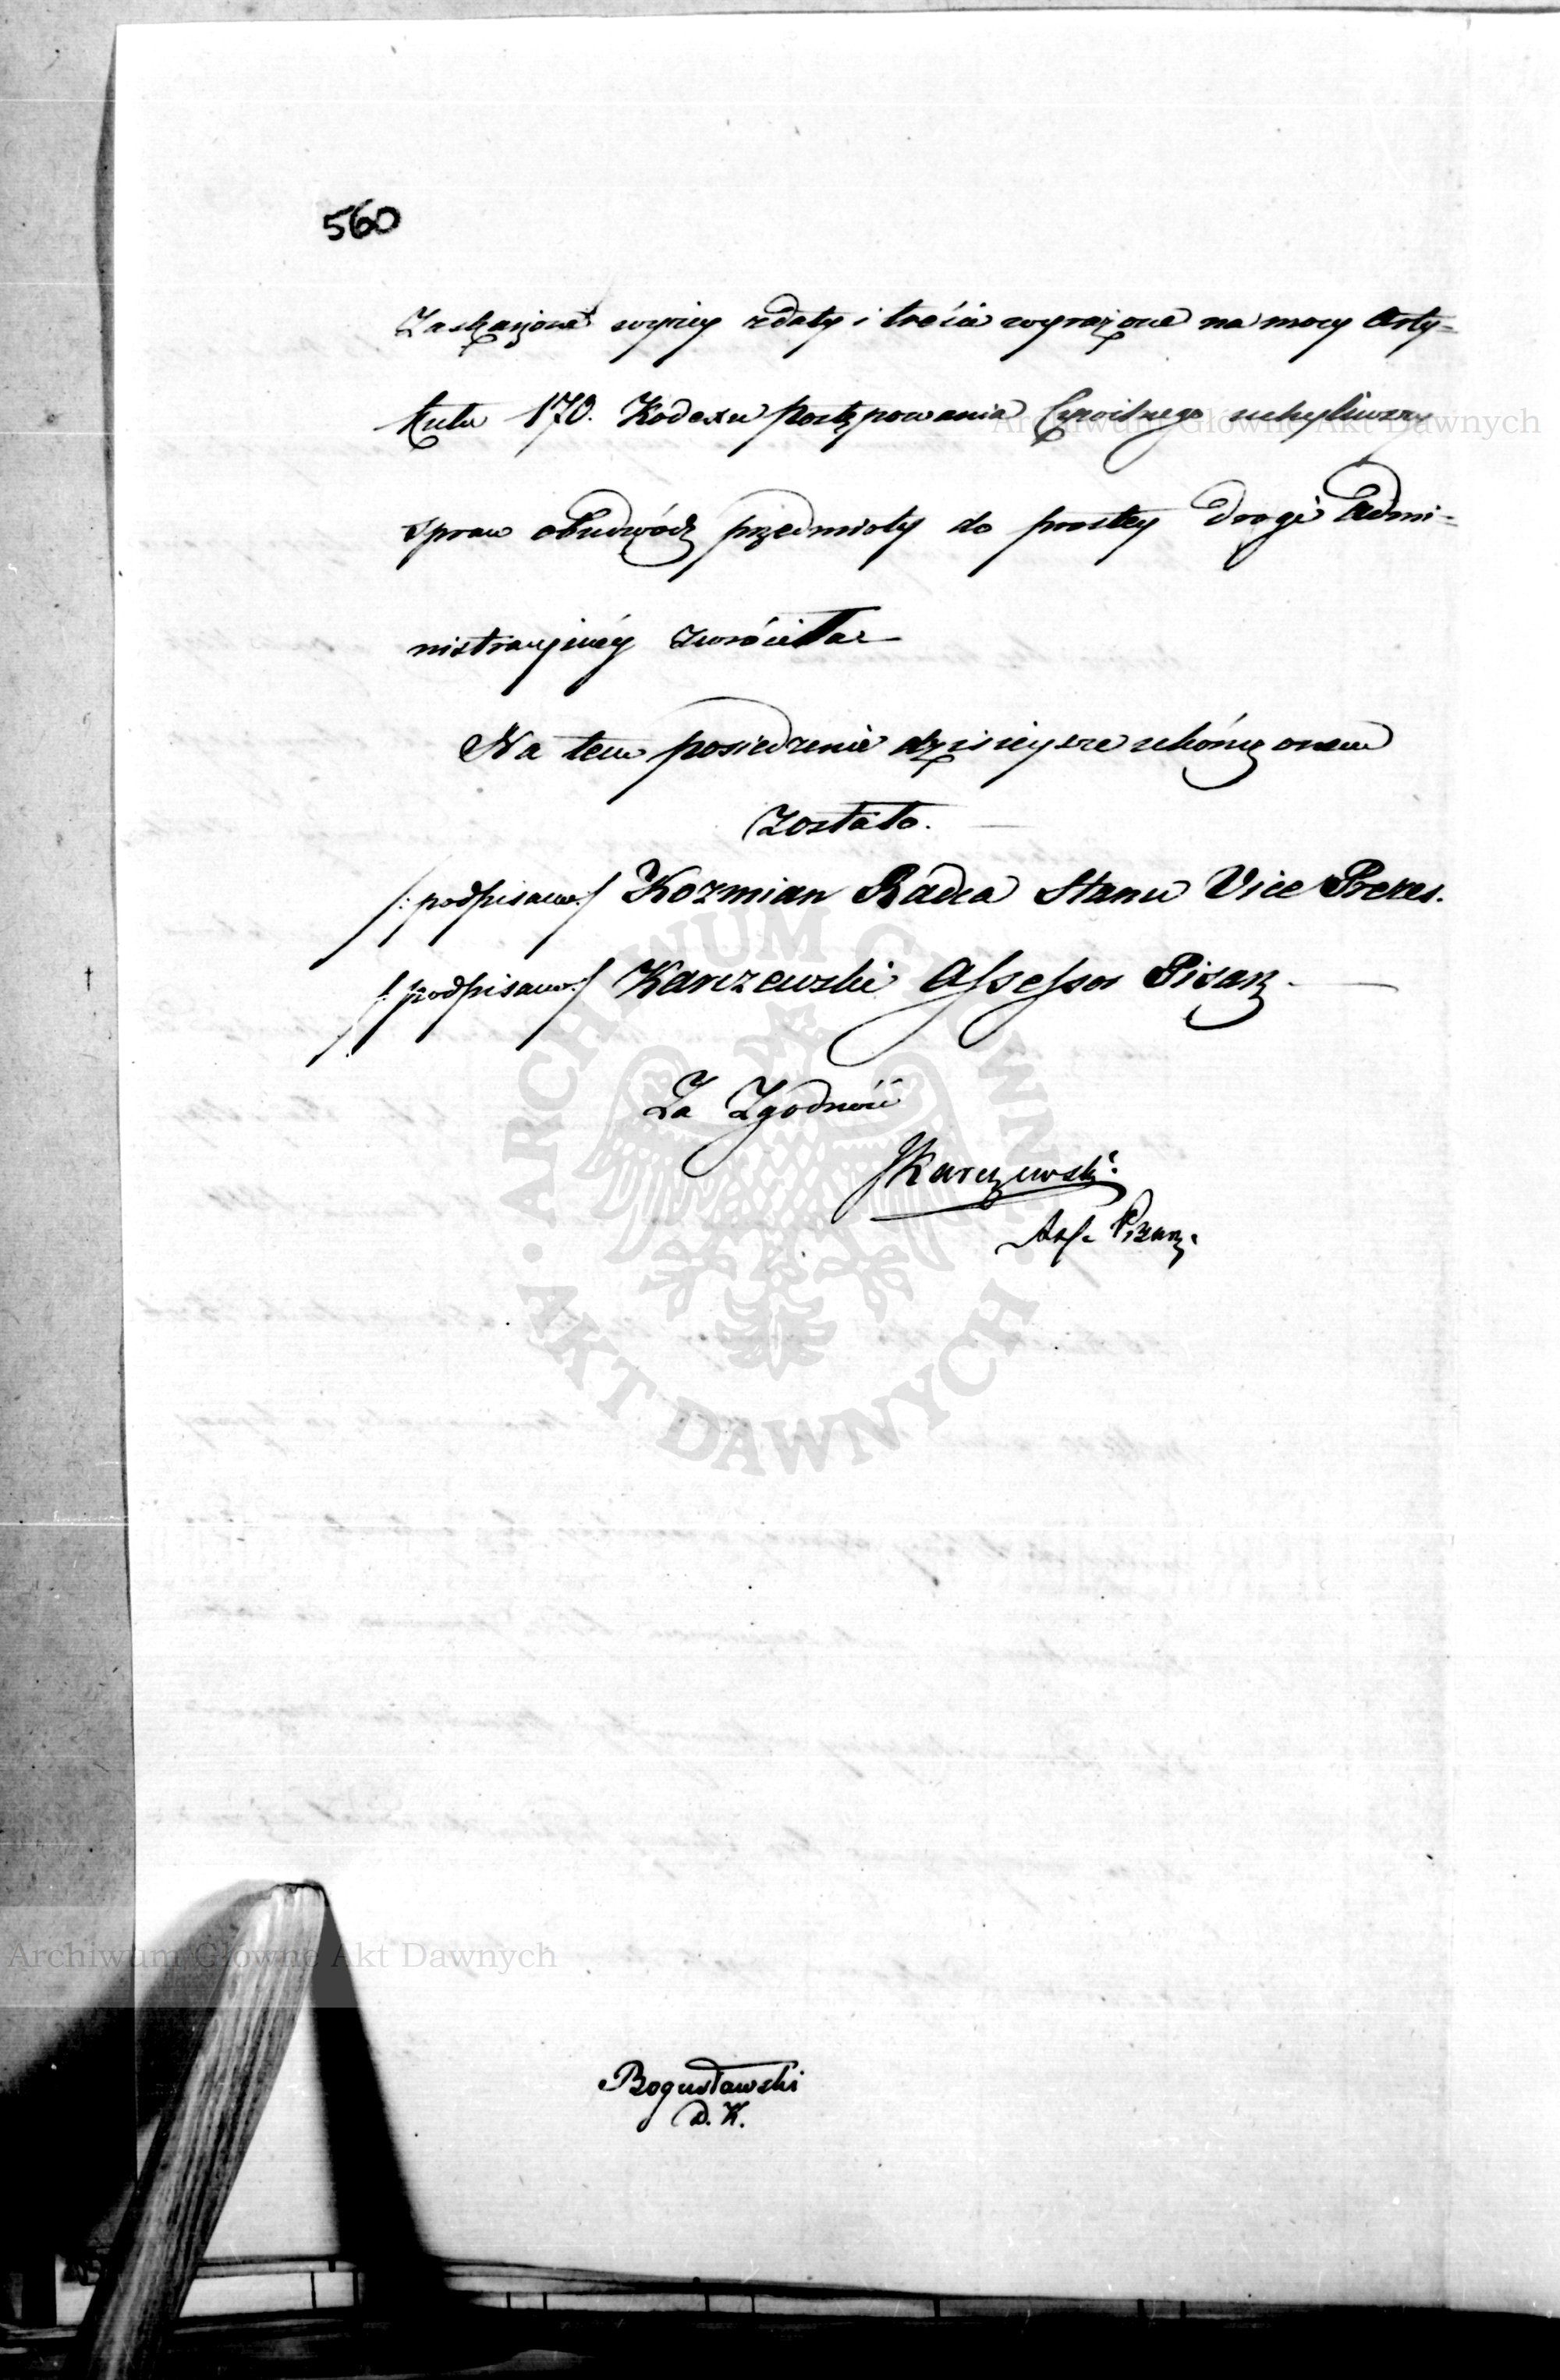 560
Zaskarzone wyżey z daty i treścia wyrażone na mocy Arty=
kułu 170. Kodexu Postępowania Cywilnego uchyliwszy
Spraw obudwóch przedmioty do prostey drogi Admi=
nistracyinéy zwróciła.
Na tem posiedzenie dzisieysze ukończonem
zostało.
/: podpisano :/ Kozmian Radca Stanu Vice Prezes.
/: podpisano :/ Karczewski Assessor Pisarz.
Za Zgodność
JKarczewski.
Ass. Pisarz.
Bogusławski
D. K.
Archiwum Główne Akt Dawnych
ARCHIWUM GŁÓWNE · AKT DAWNYCH ·
Archiwum Główne Akt Dawnych